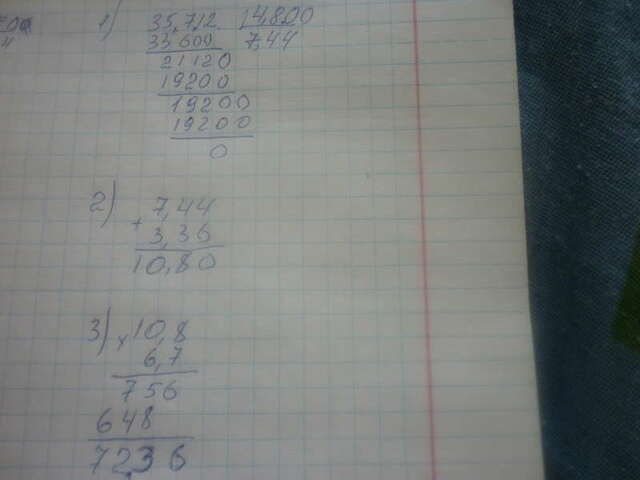 1) 35,712 4,800
33 600 7,44
21120
19200
19200
19200
0
2) 7,44
+ 3,36
10,80
3) × 10,8
6,7
756
648
72,36